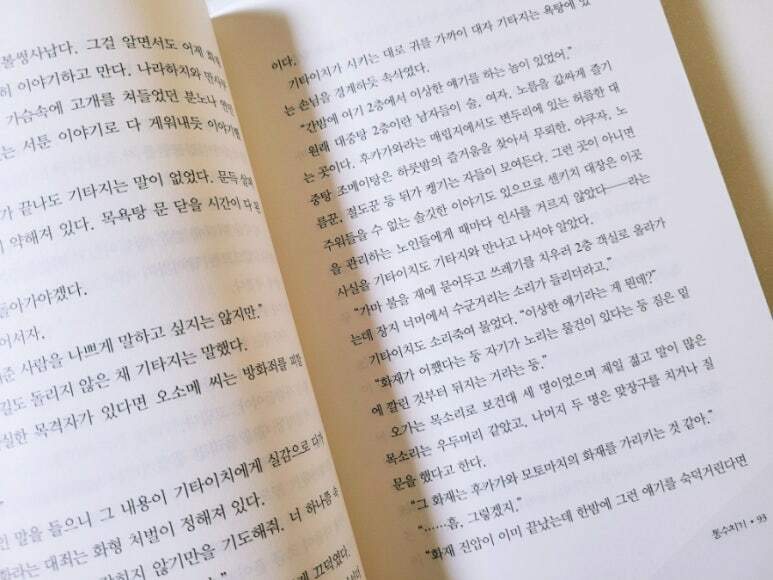 볼썽사납다. 그걸 알면서도 어제
히 이야기하고 만다. 나라하치와
가슴속에 고개를 쳐들었던 분노나
는 서툰 이야기로 다 게워내듯 이야기했
가 끝나도 기타지는 말이 없었다. 문득
이 약해져 있다. 목욕탕 문 닫을 시간이 다
돌아가야겠다.
어서자.
준 사람을 나쁘게 말하고 싶지는 않지만."
길도 돌리지 않은 채 기타지는 말했다.
실한 목격자가 있다면 오소메 씨는 방화죄를 피할
인 말을 들으니 그 내용이 기타이치에게 실감으로
화라는 대죄는 화형 처벌이 정해져 있다.
않기만을 기도해줘. 너 하나쯤
끄덕였다.
이다.
기타이치가 시키는 대로 귀를 가까이 대자 기타지는 욕탕에 있
는 손님을 경계하듯 속삭였다.
"간밤에 여기 2층에서 이상한 얘기를 하는 놈이 있었어."
원래 대중탕 2층이란 남자들이 술, 여자, 노름을 값싸게 즐기
는 곳이다. 후카가와라는 매립지에서도 변두리에 있는 허름한 대
중탕 조메이탕은 하룻밤의 즐거움을 찾아서 무뢰한, 야쿠자, 노
름꾼, 절도꾼 등 뒤가 켕기는 자들이 모여든다. 그런 곳이 아니면
주워들을 수 없는 솔깃한 이야기도 있으므로 센키치 대장은 이곳
을 관리하는 노인들에게 때마다 인사를 거르지 않았다――라는
사실을 기타이치도 기타지와 만나고 나서야 알았다.
"가마 불을 재에 묻어두고 쓰레기를 치우러 2층 객실로 올라가
는데 장지 너머에서 수군거리는 소리가 들리더라고."
기타이치도 소리죽여 물었다. "이상한 얘기라는 게 뭔데?"
"화재가 어쨌다는 둥 자기가 노리는 물건이 있다는 둥 짐은 밑
에 깔린 것부터 뒤지는 거라는 둥."
오가는 목소리로 보건대 세 명이었으며 제일 젊고 말이 많은
목소리는 우두머리 같았고, 나머지 두 명은 맞장구를 치거나 질
문을 했다고 한다.
"그 화재는 후카가와 모토마치의 화재를 가리키는 것 같아."
"……흠, 그렇겠지."
"화재 진압이 이미 끝났는데 한밤에 그런 얘기를 숙덕거린다면
통수치기 • 93